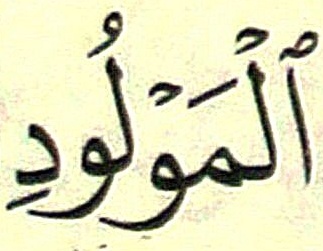 ٱلْمَوْلُودِ